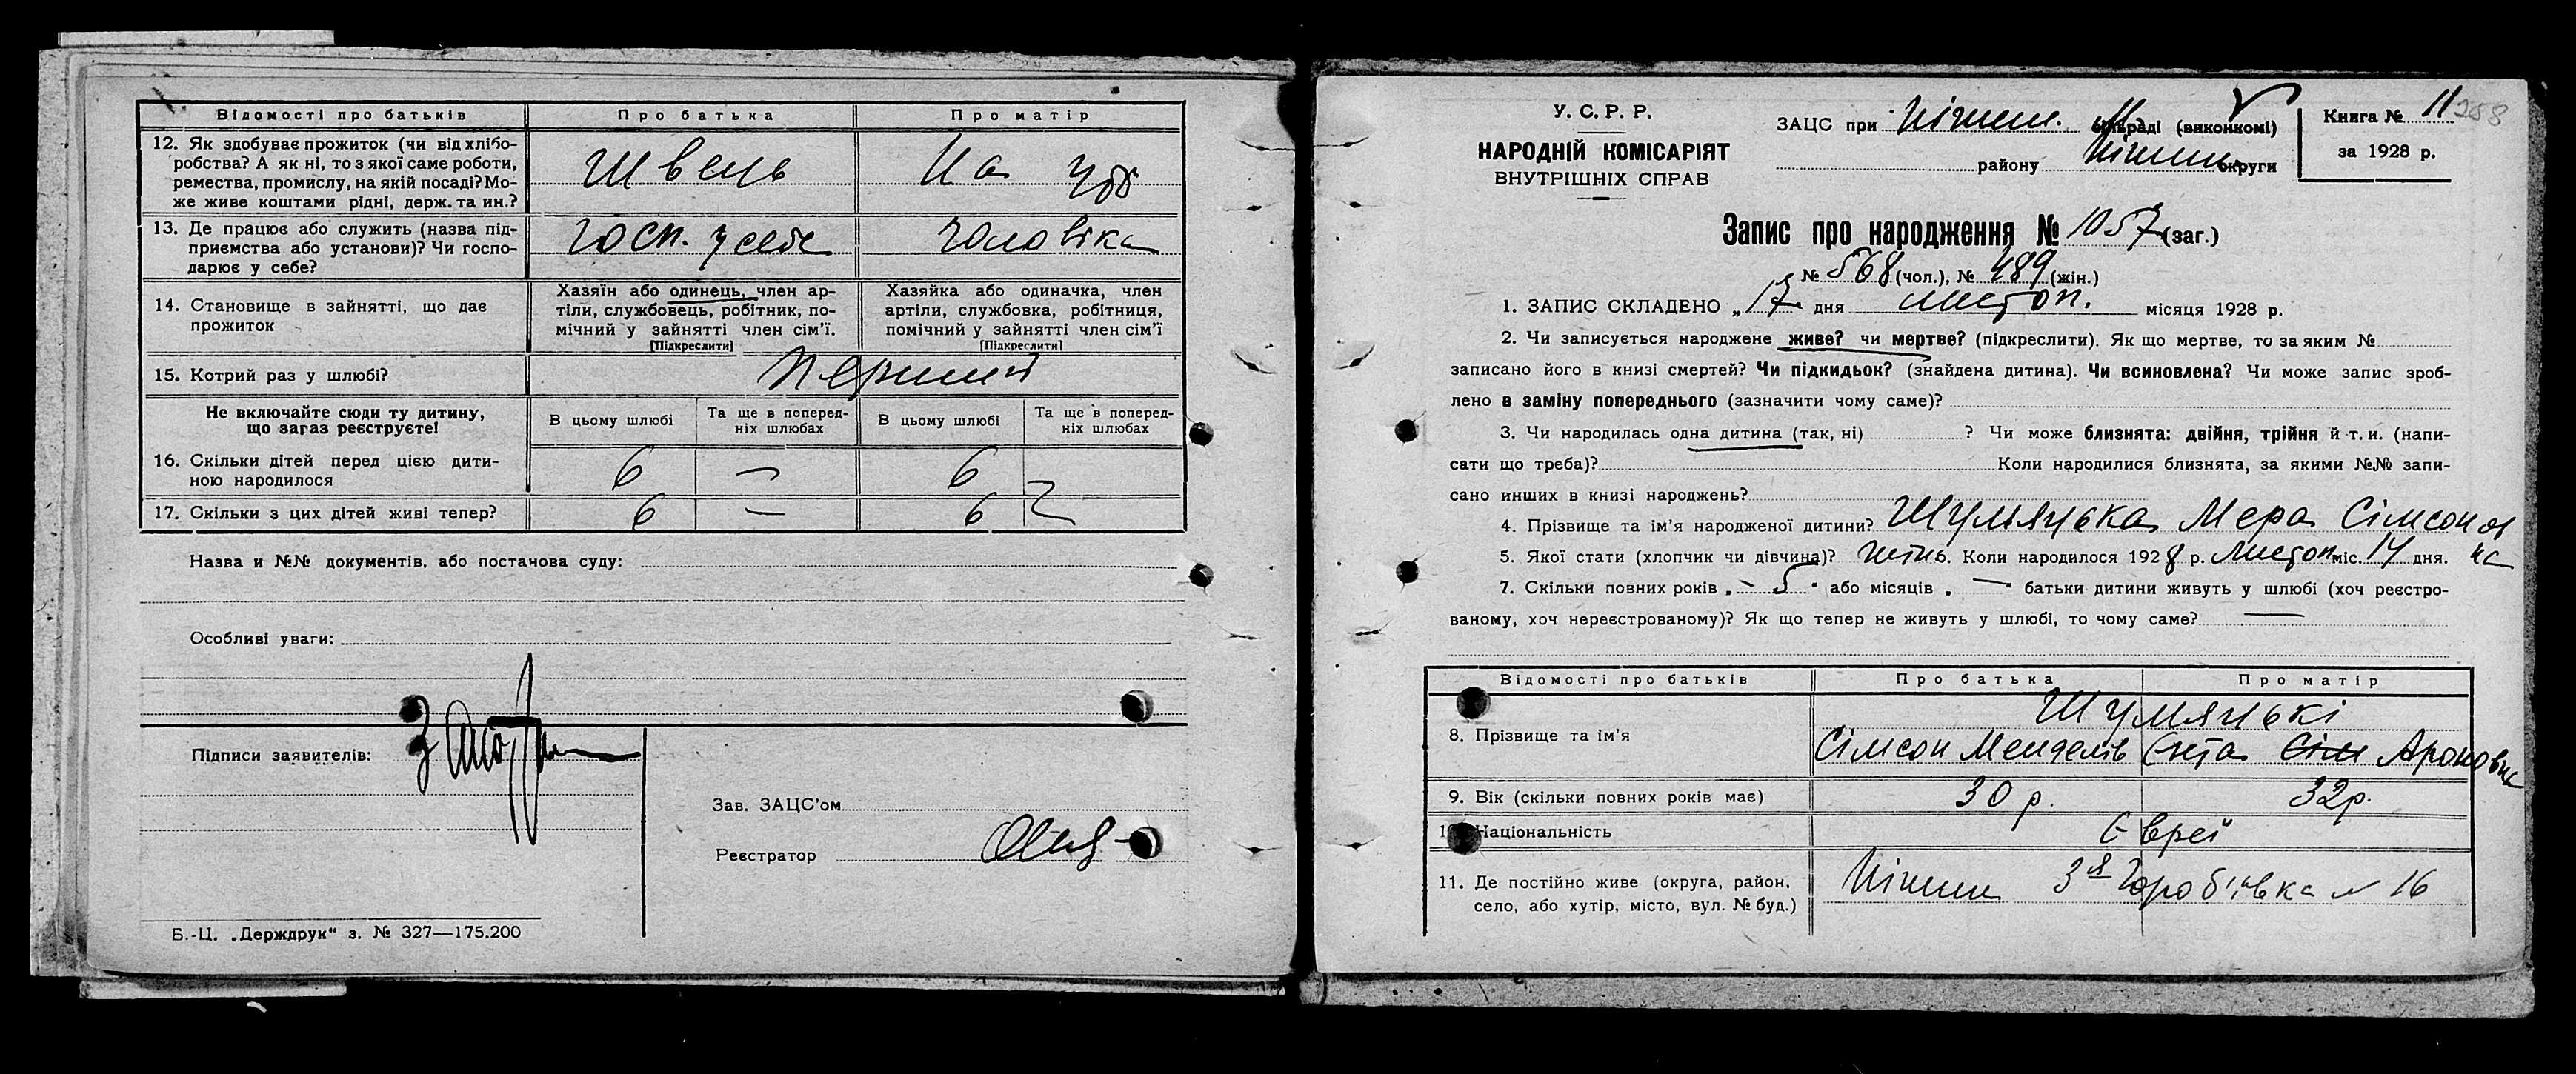 Відомості про батьків Про батька Про матір
12. Як здобуває прожиток (чи від хлібо-
робства? А як ні, то з якої саме роботи,
ремества, промислу, на якій посаді? Мо-
же живе коштами рідні, держ. та ин.?
Швець На
13. Де працює або служить (назва під-
приємства або установи)? Чи госпо-
дарює у себе?
госп. у себе чоловіка
14. Становище в зайнятті, що дає
прожиток
Хазяїн або одинець, член ар-
тіли, службовець, робітник, по-
мічний у зайнятті член сім'ї.
[Підкреслити]
Хазяйка або одиначка, член
артіли, службовка, робітниця,
помічний у зайнятті член сім'ї
[Підкреслити]
15. Котрий раз у шлюбі? перший
Не включайте сюди ту дитину,
що загаз реєструєте!
В цьому шлюбі Та ще в поперед-
ніх шлюбах В цьому шлюбі Та ще в поперед-
ніх шлюбах
16. Скільки дітей перед цією дити-
ною народилося 6 — 6
17. Скільки з цих дітей живі тепер? 6 — 6
Назва и №№ документів, або постанова суду:
Особливі уваги:
Підписи заявителів:
Зав. ЗАЦС'ом
Реєстратор
Б.-Ц. „Держдрук“ з. № 327—175.200
У. С. Р. Р.
НАРОДНІЙ КОМІСАРІЯТ
ВНУТРІШНІХ СПРАВ
ЗАЦС при Ніжин. (виконкомі)
району Ніжин округи
Книга № 11 258
за 1928 р.
Запис про народження № 1057 (заг.)
№ 568 (чол.), № 489 (жін.)
1. ЗАПИС СКЛАДЕНО „ 17 дня листоп. місяця 1928 р.
2. Чи записується народжене живе? чи мертве? (підкреслити). Як що мертве, то за яким №
записано його в книзі смертей? Чи підкидьок? (знайдена дитина). Чи всиновлена? Чи може запис зроб-
лено в заміну попереднього (зазначити чому саме)?
3. Чи народилась одна дитина (так, ні) ? Чи може близнята: двійня, трійня й т. и. (напи-
сати що треба)? Коли народилися близнята, за якими №№ запи-
сано инших в книзі народжень?
4. Прізвище та ім'я народженої дитини? Шумяцька Мера Сімсонов
на
5. Якої стати (хлопчик чи дівчина)? жінь. Коли народилося 1928 р. листоп міс. 14 дня.
7. Скільки повних років „ 5 “ або місяців „ — “ батьки дитини живуть у шлюбі (хоч реєстро-
ваному, хоч нереєстрованому)? Як що тепер не живуть у шлюбі, то чому саме? —
Відомості про батьків Про батька Про матір
Шумяцькі
8. Прізвище та ім'я Сімсон Менделів Єнта Сім Ароновна
9. Вік (скільки повних років має) 30 р. 32 р.
10. Національність Євреї
11. Де постійно живе (округа, район,
село, або хутір, місто, вул. № буд.)
Ніжин 3я Горобцівка № 16